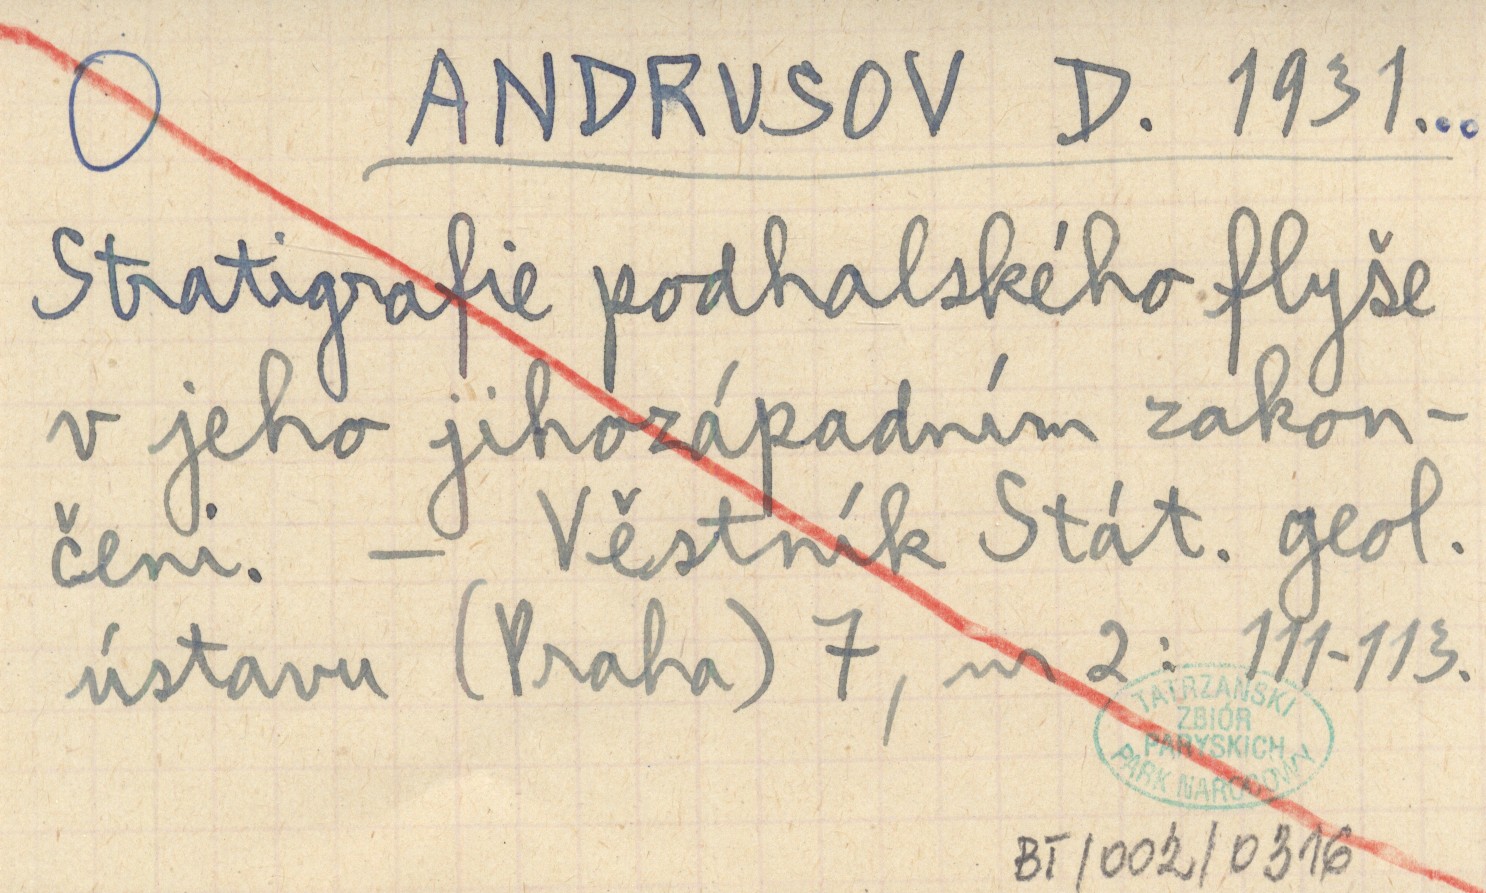 ANDRUSOV D. 1931...
Stratigrafie podhalského flyše
v jeho jihozápadním zakon-
čeni. — Věstník Stát. geol.
ústavu (Praha) 7, nr 2: 111-113.
TATRZAŃSKI
ZBIÓR
PARYSKICH
PARK NARODOWY
BT/002/0316